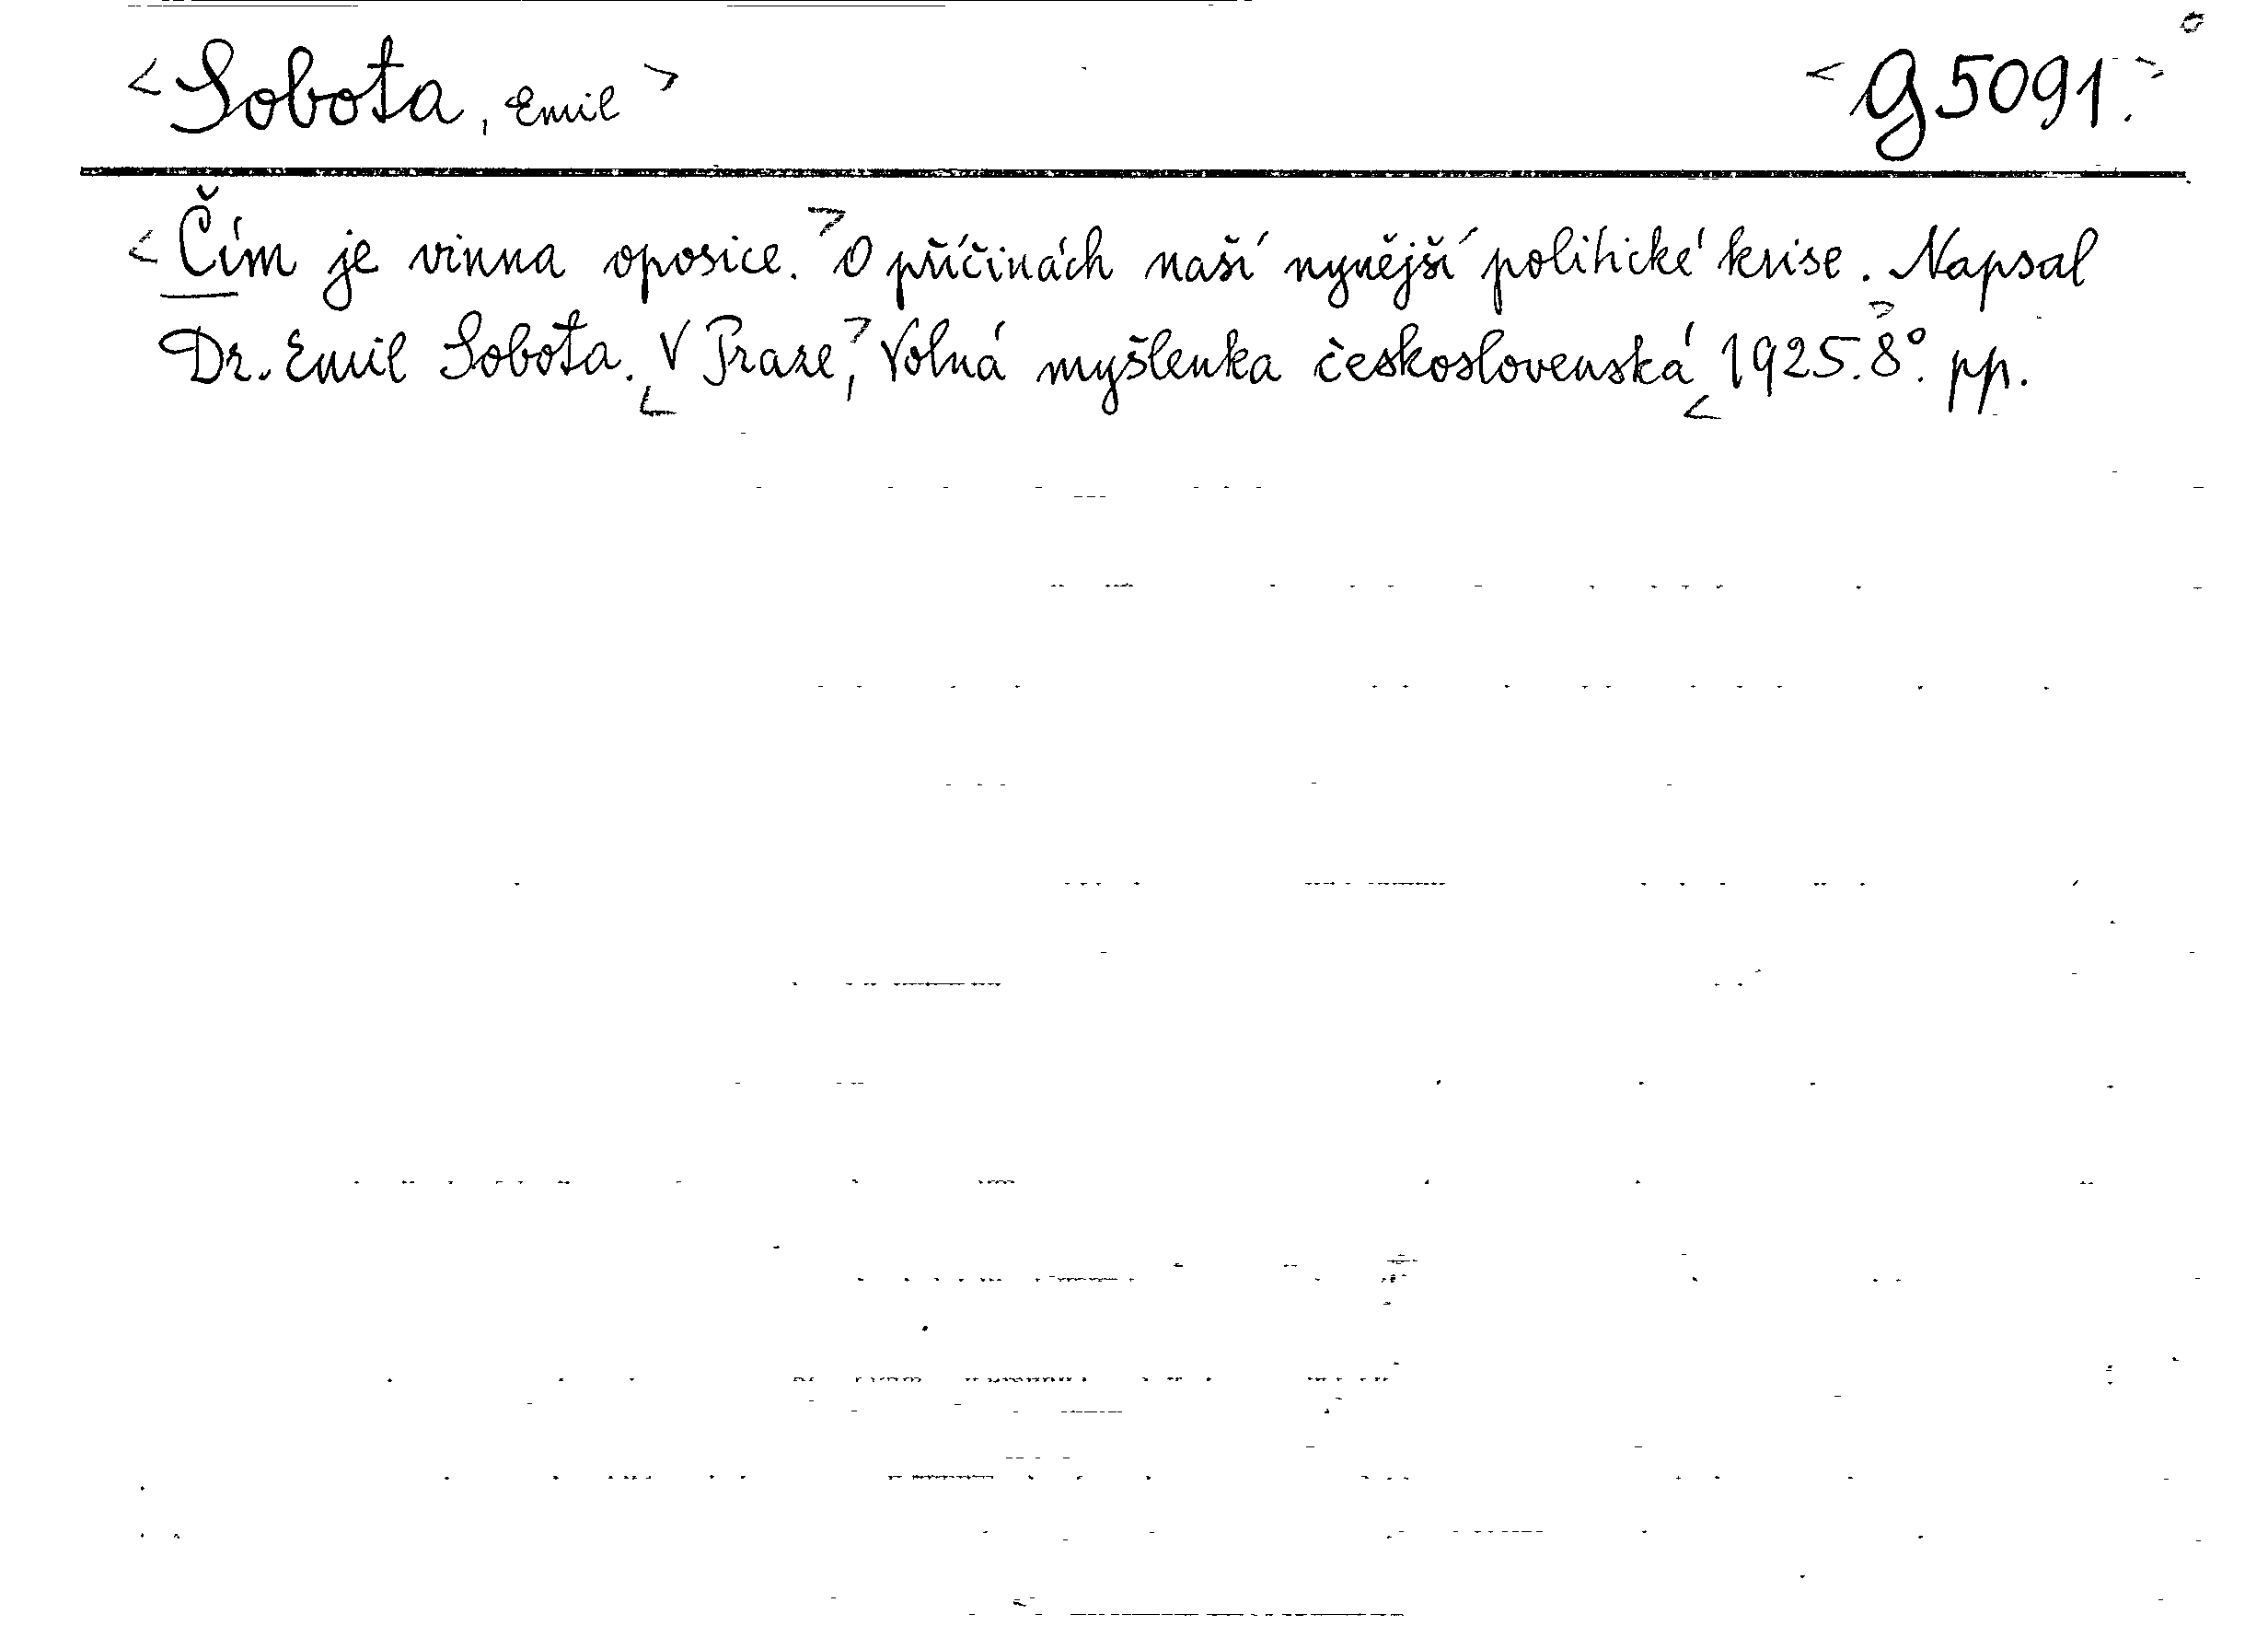 <Sobota, Emil> <G 5091.>
<Čím je vinna oposice.> O příčinách naší nynější politické krise. Napsal
Dr. Emil Sobota. <V Praze,> Volná myšlenka československá <1925.> 8°. pp.